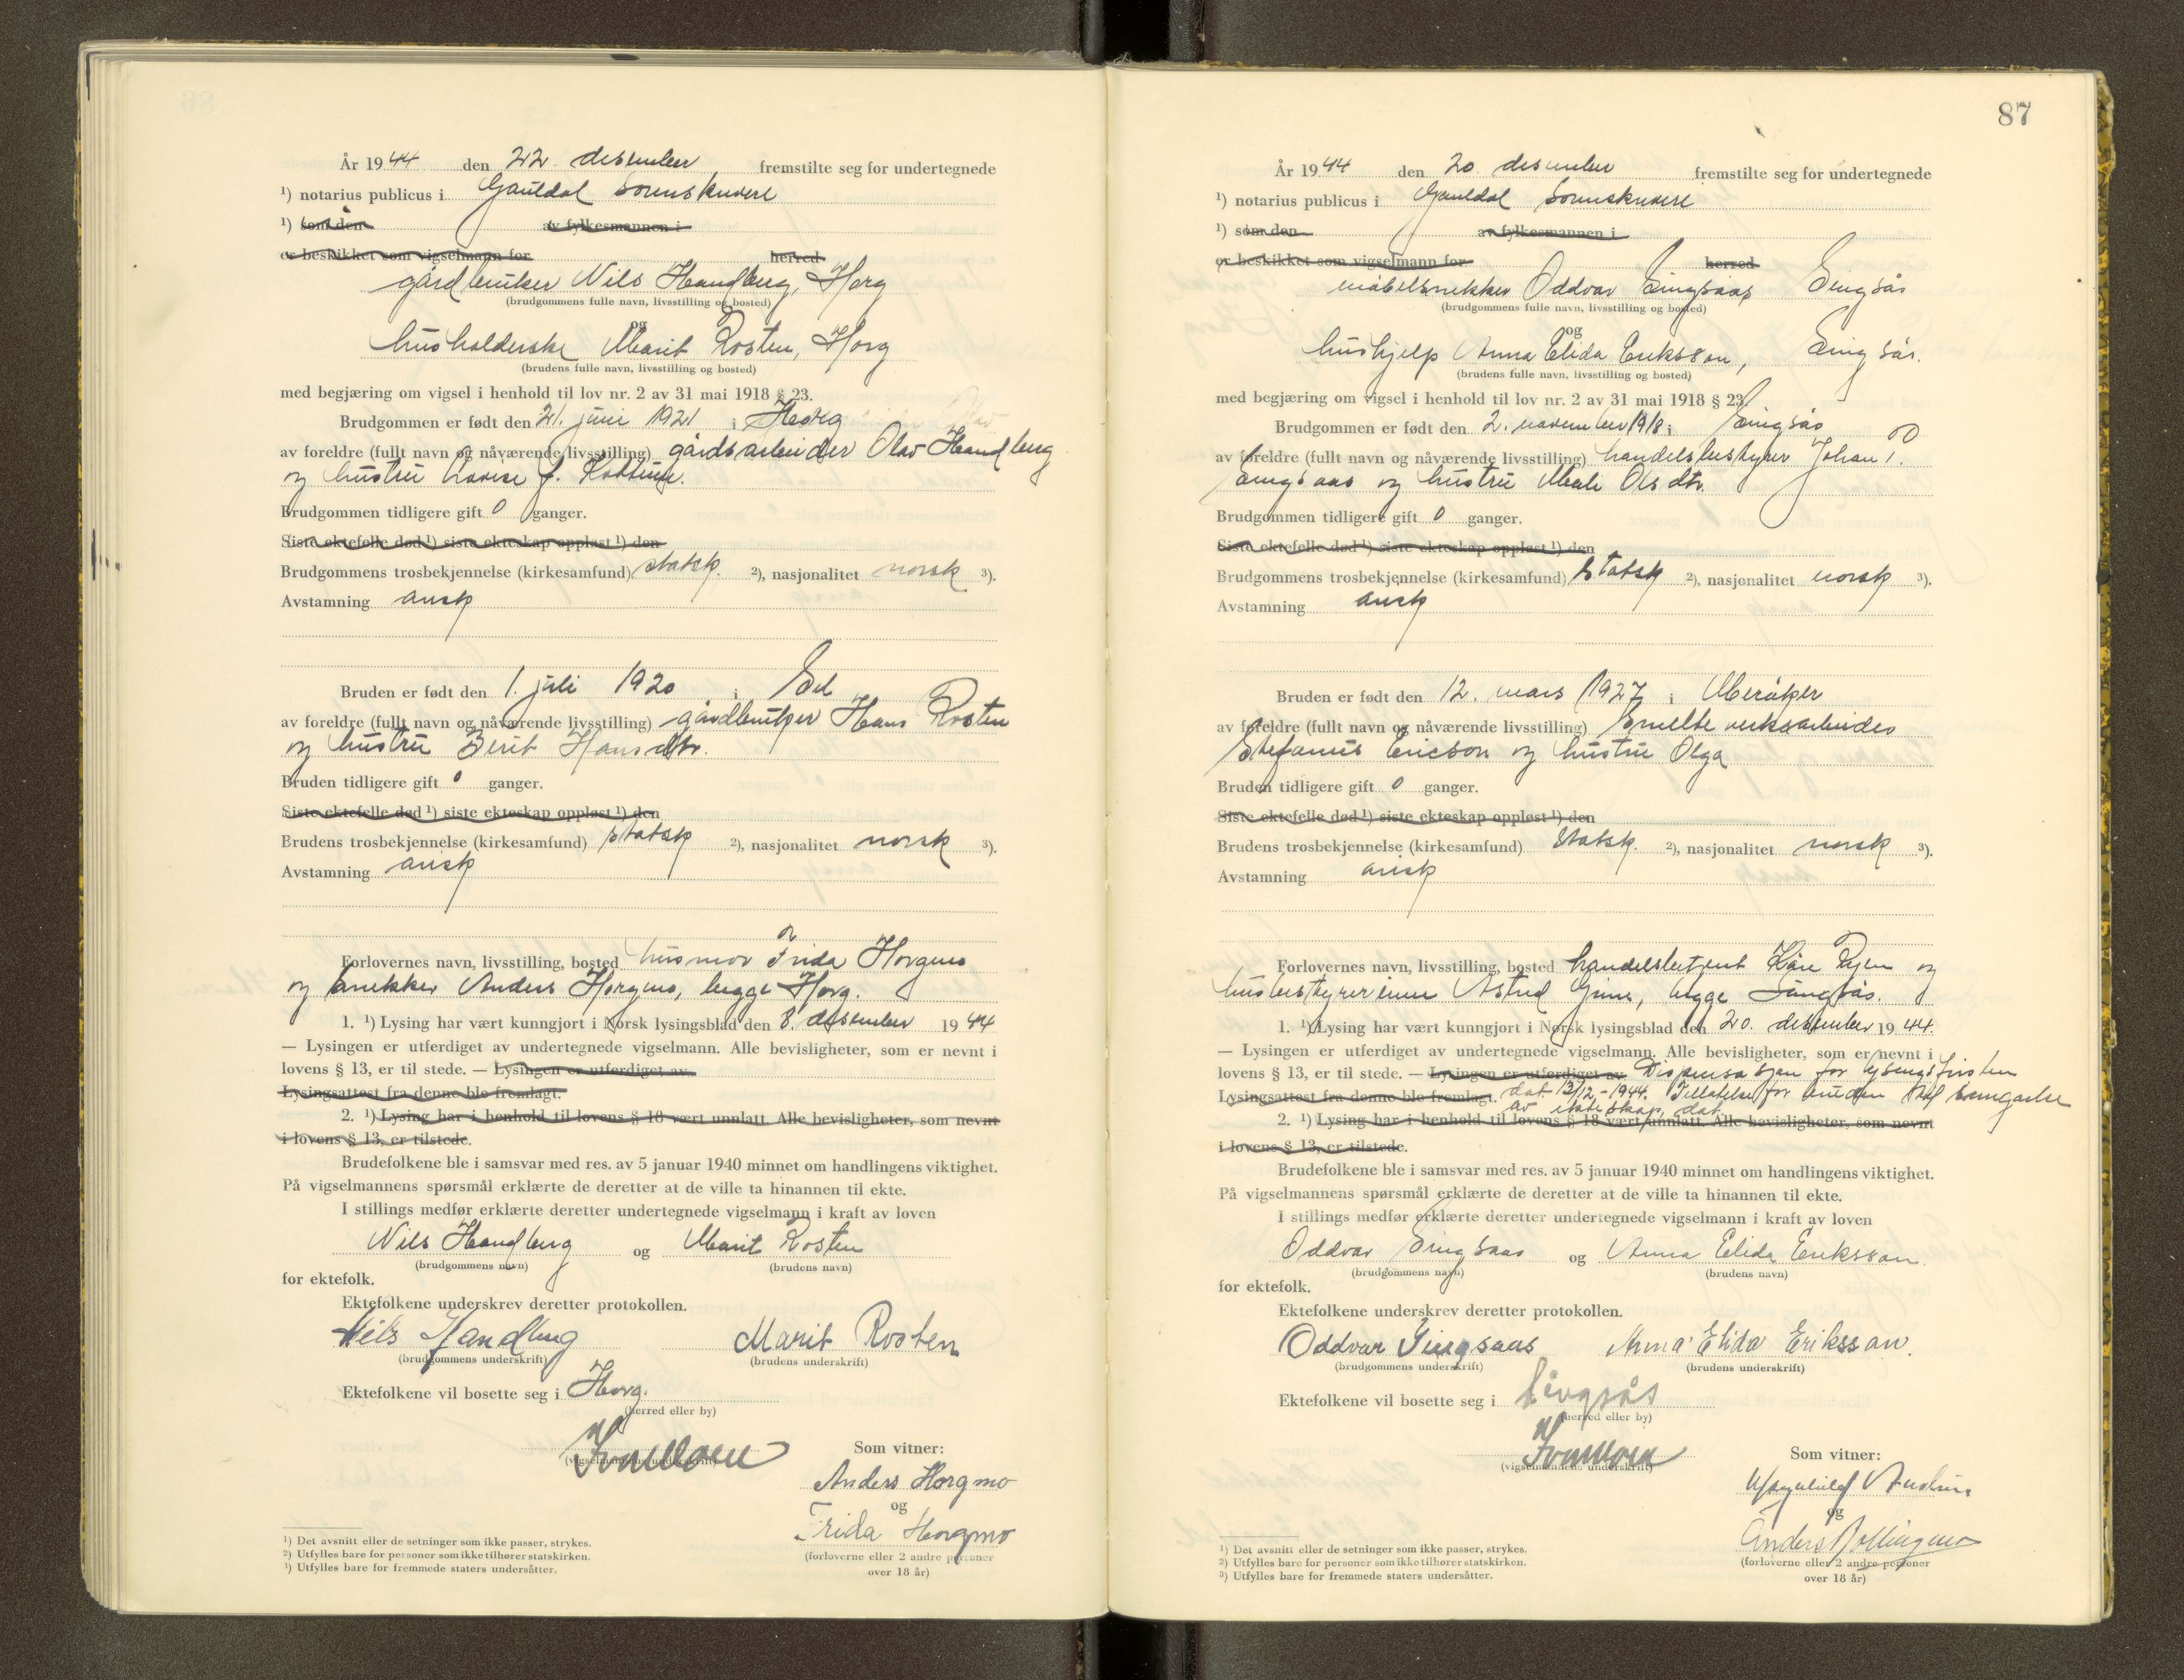 År 1944 den 22. desember fremstilte seg for undertegnede
¹) notarius publicus i Gauldal Sorenskriveri
¹) som den av fylkesmannen i
er beskikket som vigselmann for herred
gårdbruker Nils Handberg, Horg
(brudgommens fulle navn, livsstilling og bosted)
og
husholderske Marit Rosten, Horg
(brudens fulle navn, livsstilling og bosted)
med begjæring om vigsel i henhold til lov nr. 2 av 31 mai 1918 § 23.
Brudgommen er født den 21. juni 1921 i Horg
av foreldre (fullt navn og nåværende livsstilling) gårdsarbeider Olav Handberg
og hustru Lovise f.
Brudgommen tidligere gift 0 ganger.
Siste ektefelle død ¹) siste ekteskap oppløst ¹) den
Brudgommens trosbekjennelse (kirkesamfund) statsk. ²), nasjonalitet norsk ³).
Avstamning arisk
Bruden er født den 1. juli 1920 i Sel
av foreldre (fullt navn og nåværende livsstilling) gårdbruker Hans Rosten
og hustru Berit Hansdtr.
Bruden tidligere gift 0 ganger.
Siste ektefelle død ¹) siste ekteskap oppløst ¹) den
Brudens trosbekjennelse (kirkesamfund) statsk ²), nasjonalitet norsk ³).
Avstamning arisk
Forlovernes navn, livsstilling, bosted husmor Frida Horgmo
og snekker Anders Horgmo, begge Horg.
1. ¹) Lysing har vært kunngjort i Norsk lysingsblad den 8. desember 1944
— Lysingen er utferdiget av undertegnede vigselmann. Alle bevisligheter, som er nevnt i
lovens § 13, er til stede. — Lysingen er utferdiget av
Lysingsattest fra denne ble fremlagt.
2. ¹) Lysing har i henhold til lovens § 18 vært unnlatt. Alle bevisligheter, som nevnt
i lovens § 13, er tilstede.
Brudefolkene ble i samsvar med res. av 5 januar 1940 minnet om handlingens viktighet.
På vigselmannens spørsmål erklærte de deretter at de ville ta hinannen til ekte.
I stillings medfør erklærte deretter undertegnede vigselmann i kraft av loven
Nils Handberg og Marit Rosten
(brudgommens navn) (brudens navn)
for ektefolk.
Ektefolkene underskrev deretter protokollen.
Nils Handberg Marit Rosten
(brudgommens underskrift) (brudens underskrift)
Ektefolkene vil bosette seg i Horg.
(herred eller by)
(vigselmannens underskrift)
Som vitner:
Anders Horgmo
og
Frida Horgmo
(forloverne eller 2 andre personer
over 18 år)
¹) Det avsnitt eller de setninger som ikke passer, strykes.
²) Utfylles bare for personer som ikke tilhører statskirken.
³) Utfylles bare for fremmede staters undersåtter.
87
År 1944 den 20. desember fremstilte seg for undertegnede
¹) notarius publicus i Gauldal Sorenskriveri
¹) som den av fylkesmannen i
er beskikket som vigselmann for herred
møbelsnekker Oddvar Singsaas Singsås
(brudgommens fulle navn, livsstilling og bosted)
og
hushjelp Anna Elida Eriksson, Singsås.
(brudens fulle navn, livsstilling og bosted)
med begjæring om vigsel i henhold til lov nr. 2 av 31 mai 1918 § 23.
Brudgommen er født den 2. november 1918 i Singsås
av foreldre (fullt navn og nåværende livsstilling) handelsbestyrer Johan P.
Singsaas og hustru Mali Olsdtr.
Brudgommen tidligere gift 0 ganger.
Siste ektefelle død ¹) siste ekteskap oppløst ¹) den
Brudgommens trosbekjennelse (kirkesamfund) Statsk ²), nasjonalitet norsk ³).
Avstamning arisk
Bruden er født den 12. mars 1927 i Meråker
av foreldre (fullt navn og nåværende livsstilling) Smelteverksarbeider
Stefanus Ericson og hustru Olga
Bruden tidligere gift 0 ganger.
Siste ektefelle død ¹) siste ekteskap oppløst ¹) den
Brudens trosbekjennelse (kirkesamfund) Statsk. ²), nasjonalitet norsk ³).
Avstamning arisk
Forlovernes navn, livsstilling, bosted handelsbetjent Kåre Rjen og
husbestyrerinne Astrid begge Singsås.
1. ¹) Lysing har vært kunngjort i Norsk lysingsblad den 20. desember 1944.
— Lysingen er utferdiget av undertegnede vigselmann. Alle bevisligheter, som er nevnt i
lovens § 13, er til stede. — Lysingen er utferdiget av Dispensasjon for lysingsfristen
Lysingsattest fra denne ble fremlagt. dat. 13/12-1944. Tillatelse for bruden til inngåelse
av ekteskap, dat.
2. ¹) Lysing har i henhold til lovens § 18 vært unnlatt. Alle bevisligheter, som nevnt
i lovens § 13, er tilstede.
Brudefolkene ble i samsvar med res. av 5 januar 1940 minnet om handlingens viktighet.
På vigselmannens spørsmål erklærte de deretter at de ville ta hinannen til ekte.
I stillings medfør erklærte deretter undertegnede vigselmann i kraft av loven
Oddvar Singsaas og Anna Elida Eriksson.
(brudgommens navn) (brudens navn)
for ektefolk.
Ektefolkene underskrev deretter protokollen.
Oddvar Singsaas Anna Elida Eriksson.
(brudgommens underskrift) (brudens underskrift)
Ektefolkene vil bosette seg i Singsås
(herred eller by)
(vigselmannens underskrift)
Som vitner:
og
Anders Bollingmo
(forloverne eller 2 andre personer
over 18 år)
¹) Det avsnitt eller de setninger som ikke passer, strykes.
²) Utfylles bare for personer som ikke tilhører statskirken.
³) Utfylles bare for fremmede staters undersåtter.